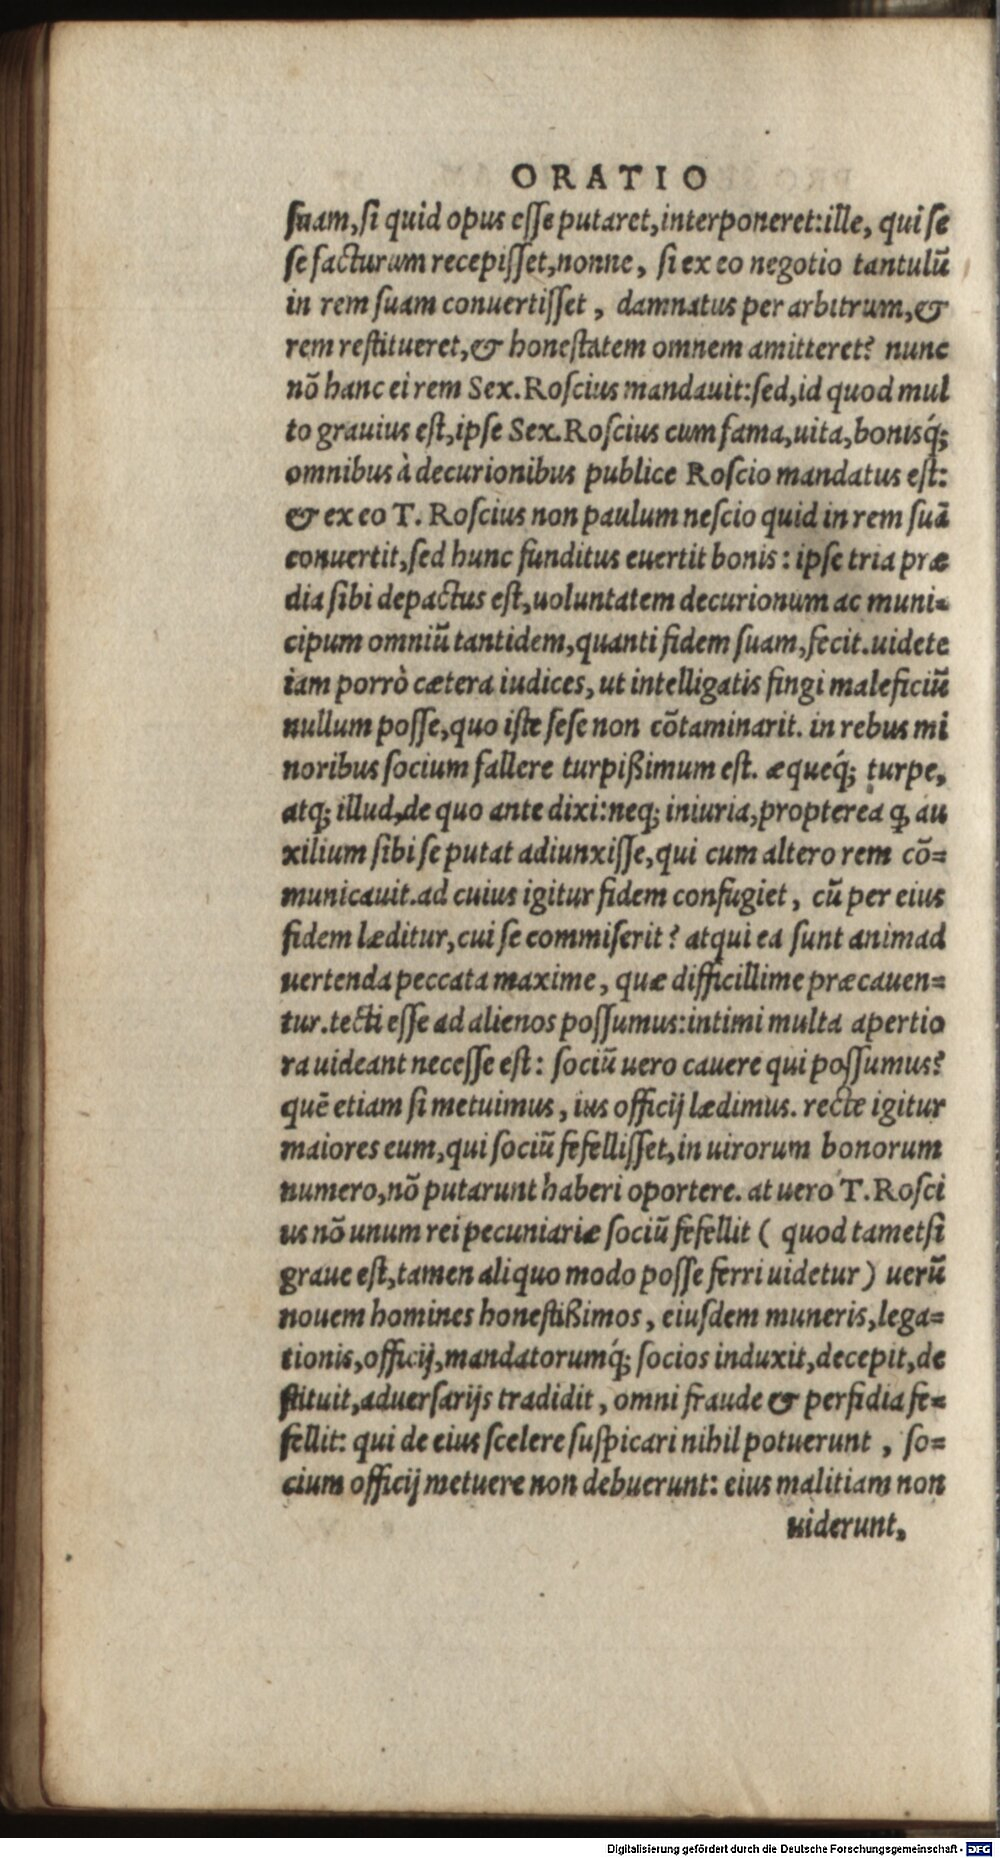 ORATIO
ſuam, ſi quid opus eſſe putaret, interponeret: ille, qui ſe
ſe facturum recepiſſet, nonne, ſi ex eo negotio tantulũ
in rem ſuam conuertiſſet, damnatus per arbitrum, &
rem reſtitueret, & honeſtatem omnem amitteret? nunc
nõ hanc ei rem Sex. Roſcius mandauit: ſed, id quod mul
to grauius eſt, ipſe Sex. Roſcius cum fama, uita, bonisq́;
omnibus à decurionibus publice Roſcio mandatus eſt:
& ex eo T. Roſcius non paulum neſcio quid in rem ſuã
conuertit, ſed hunc funditus euertit bonis: ipſe tria præ
dia ſibi depactus eſt, uoluntatem decurionum ac muni-
cipum omniũ tantidem, quanti fidem ſuam, fecit. uidete
iam porrò cætera iudices, ut intelligatis fingi maleficiũ
nullum poſſe, quo iſte ſeſe non cõtaminarit. in rebus mi
noribus ſocium fallere turpißimum eſt. æqueq́; turpe,
atq; illud, de quo ante dixi: neq; iniuria, propterea ꝙ au
xilium ſibi ſe putat adiunxiſſe, qui cum altero rem cõ=
municauit. ad cuius igitur fidem confugiet, cũ per eius
fidem læditur, cui ſe commiſerit? atqui ea ſunt animad
uertenda peccata maxime, quæ difficillime præcauen=
tur. tecti eſſe ad alienos poſſumus: intimi multa apertio
ra uideant neceſſe eſt: ſociũ uero cauere qui poſſumus?
quẽ etiam ſi metuimus, ius officij lædimus. recte igitur
maiores eum, qui ſociũ fefelliſſet, in uirorum bonorum
numero, nõ putarunt haberi oportere. at uero T. Roſci
us nõ unum rei pecuniariæ ſociũ fefellit ( quod tametſi
graue eſt, tamen aliquo modo poſſe ferri uidetur) uerũ
nouem homines honeſtißimos, eiuſdem muneris, lega=
tionis, officij, mandatorumq́; ſocios induxit, decepit, de
ſtituit, aduerſarijs tradidit, omni fraude & perfidia fe=
fellit: qui de eius ſcelere ſuſpicari nihil potuerunt, ſo=
cium officij metuere non debuerunt: eius malitiam non
uiderunt,
Digitalisierung gefördert durch die Deutsche Forschungsgemeinschaft - DFG